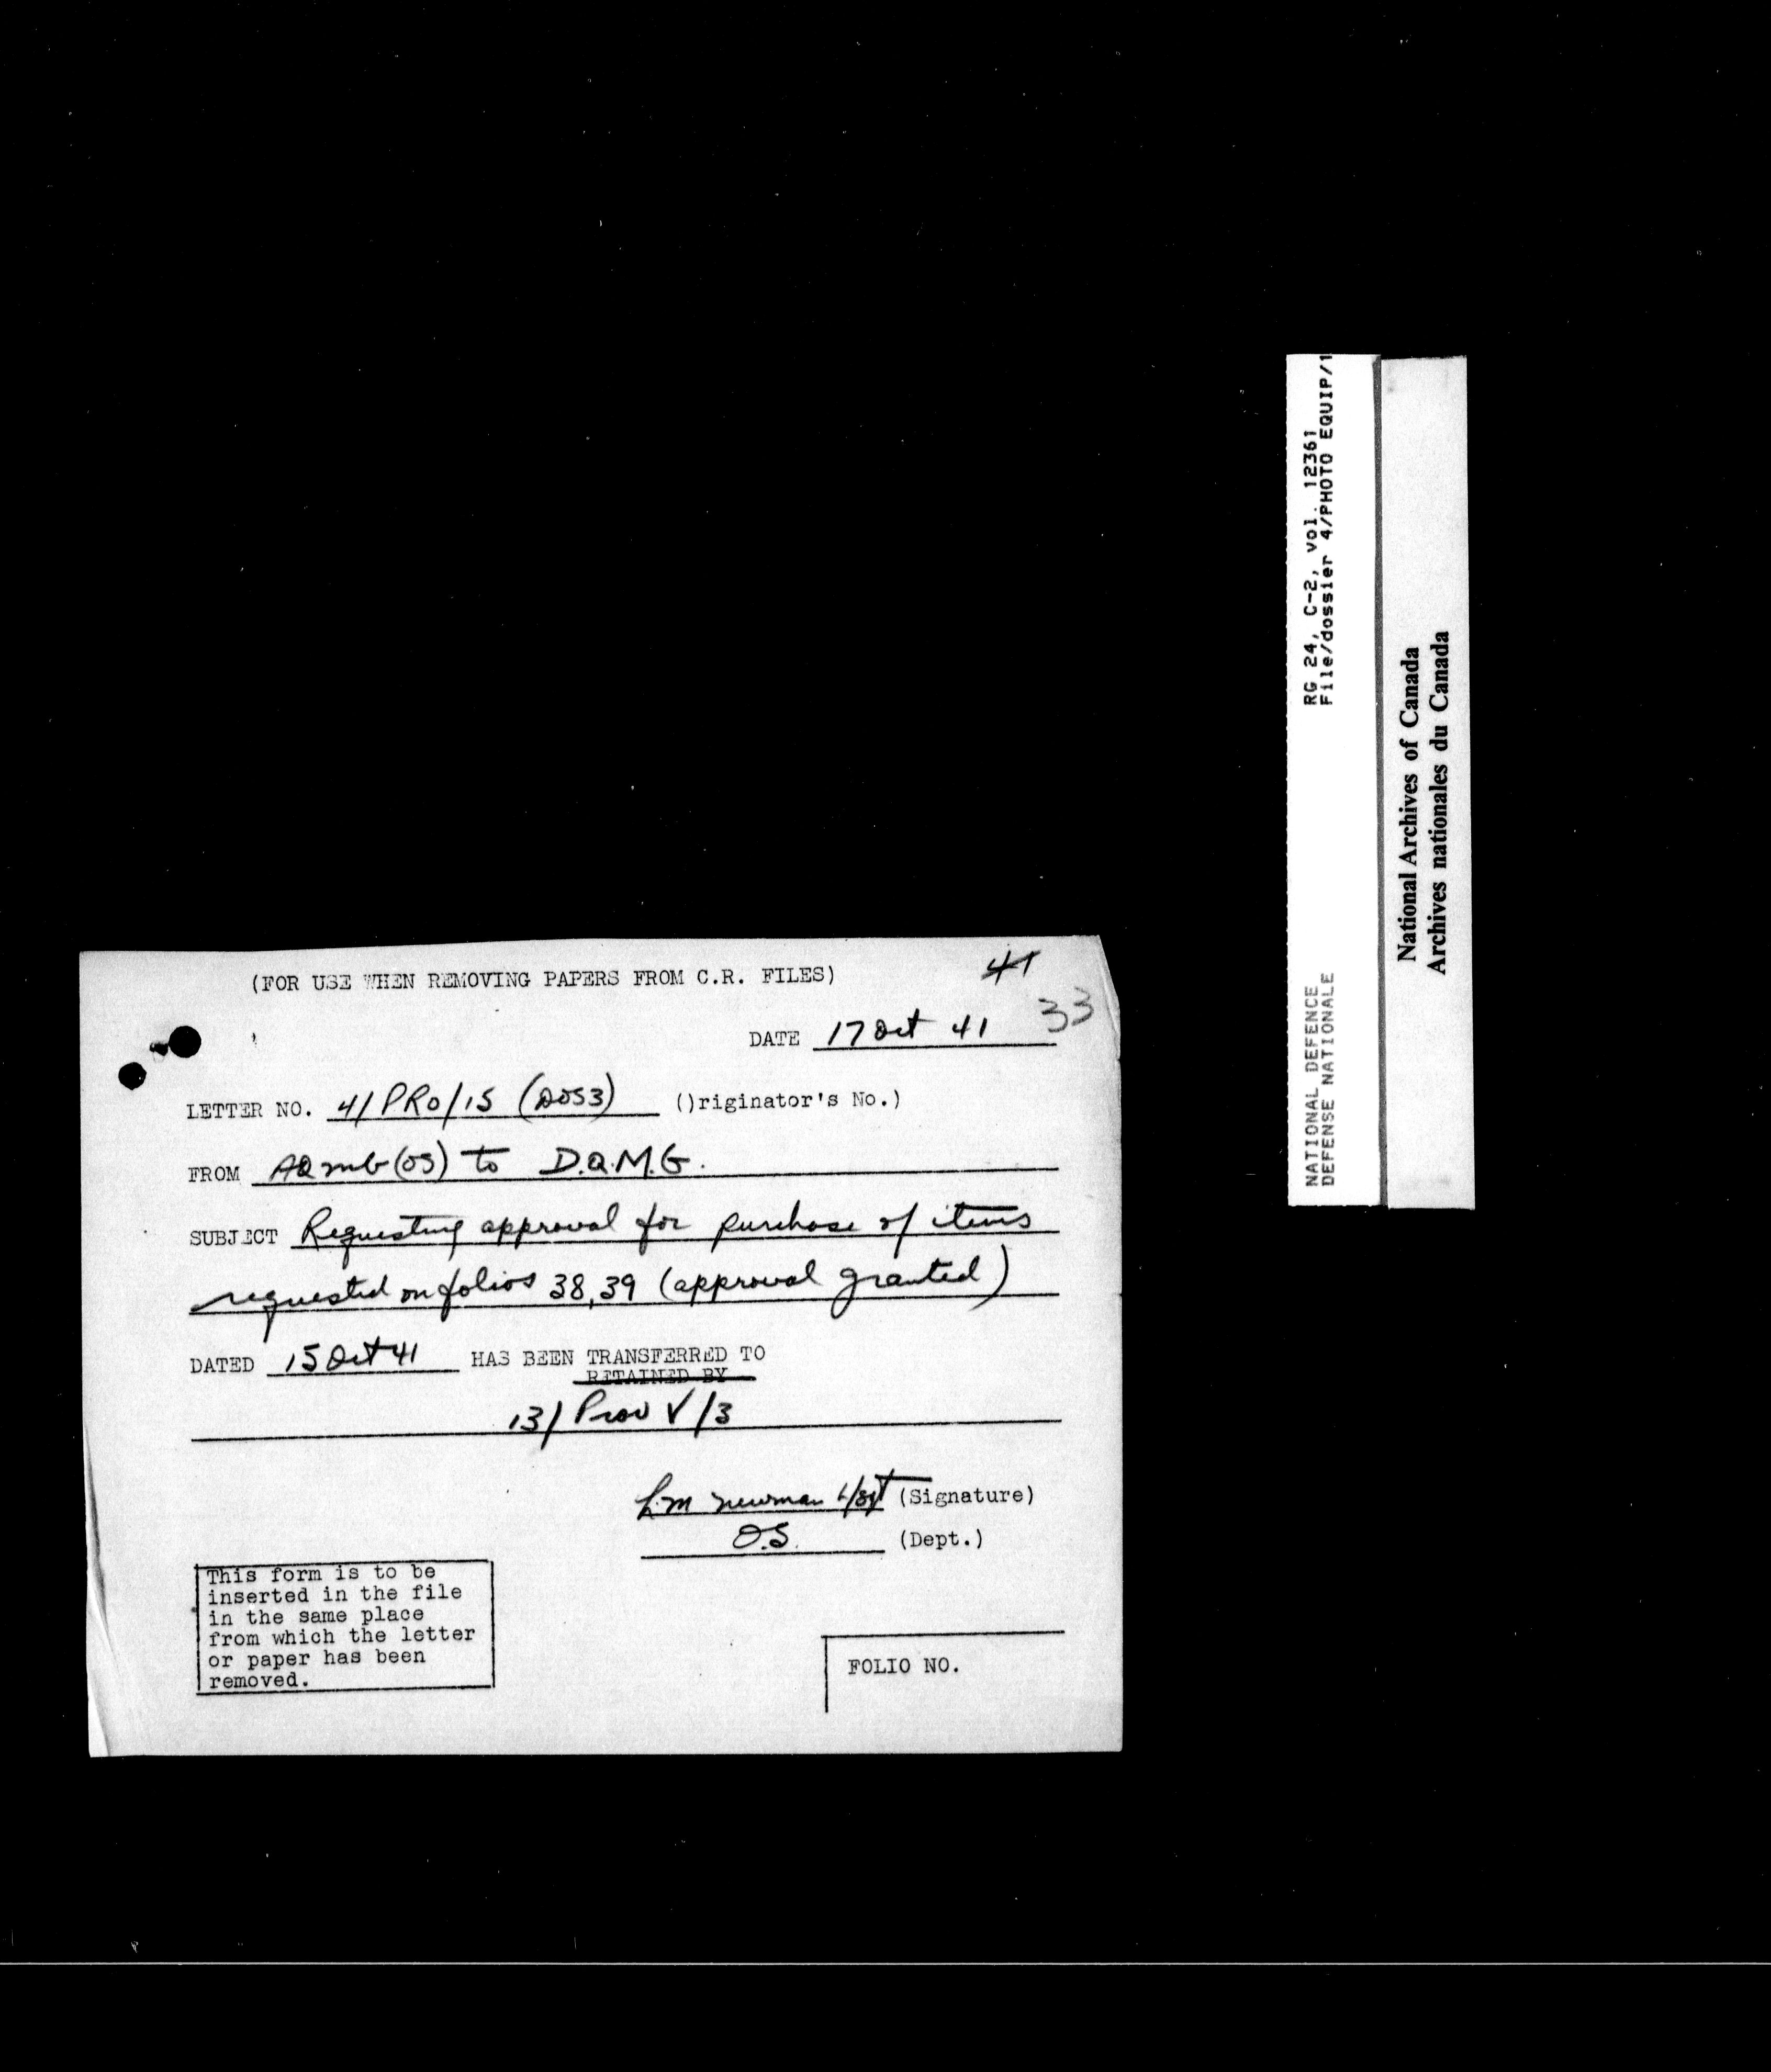 (FOR USE WHEN REMOVING PAPERS FROM C.R. FILES)
41
33
DATE 17 Oct 41
LETTER NO. 4/PRO/15 (DOS3) ()riginator's No.)
FROM AQMG(OS) to D.Q.M.G.
SUBJECT Requesting approval for purchase of items
requested on folios 38,39 (approval granted)
DATED 15 Oct 41 HAS BEEN TRANSFERRED TO
RETAINED BY
13/Prov V/3
L.M Newman L/Sgt (Signature)
O.S. (Dept.)
This form is to be
inserted in the file
in the same place
from which the letter
or paper has been
removed.
FOLIO NO.
RG 24, C-2, vol. 12361
File/dossier 4/PHOTO EQUIP/1
NATIONAL DEFENCE
DEFENSE NATIONALE
National Archives of Canada
Archives nationales du Canada